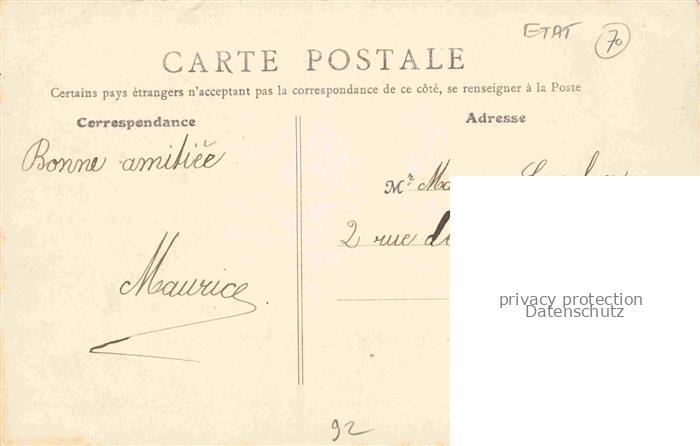 ETAT 70
CARTE POSTALE
Certains pays étrangers n'acceptant pas la correspondance de ce côté, se renseigner à la Poste
Correspondance
Bonne amitiée
Maurice
Adresse
Mr
2 rue
privacy protection
Datenschutz
92